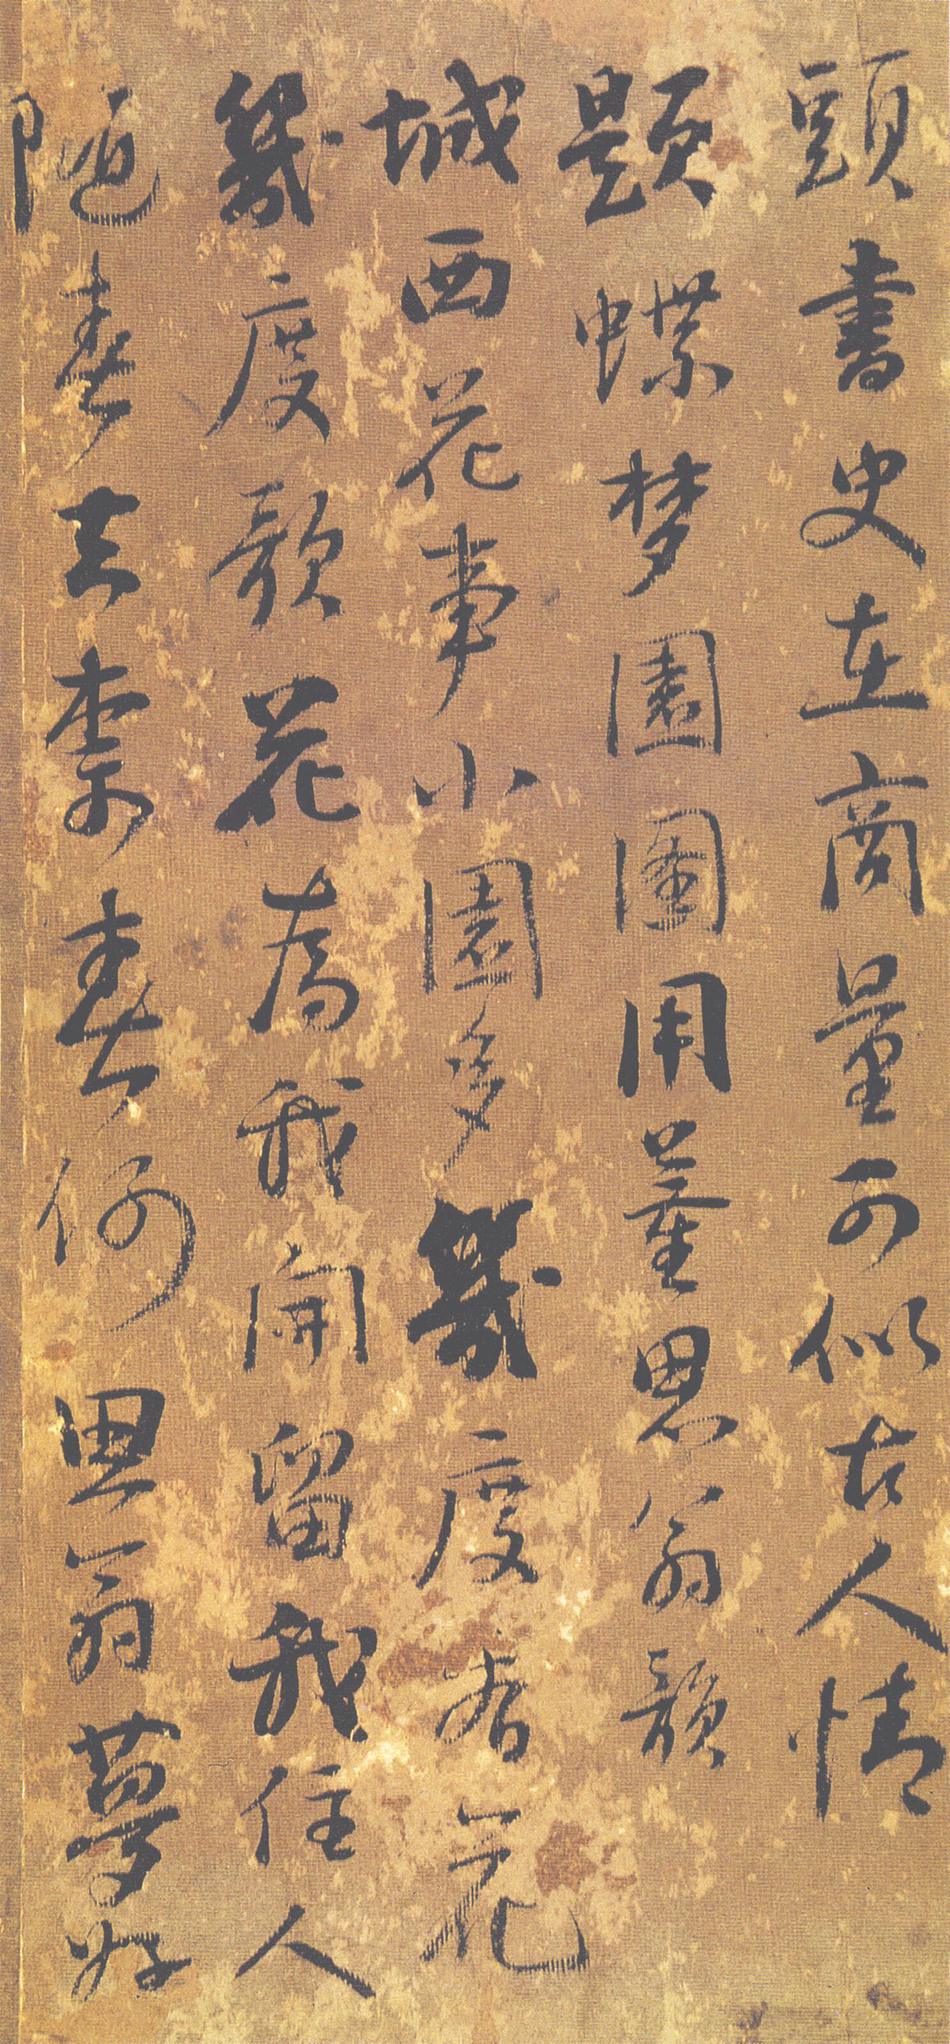 頭書史在商量可似古人情
題蝶梦園圖用董思翁韻
城西花事小園多幾度看花
幾度歌花為我開留我住人
隨春去奈春何思翁夢好